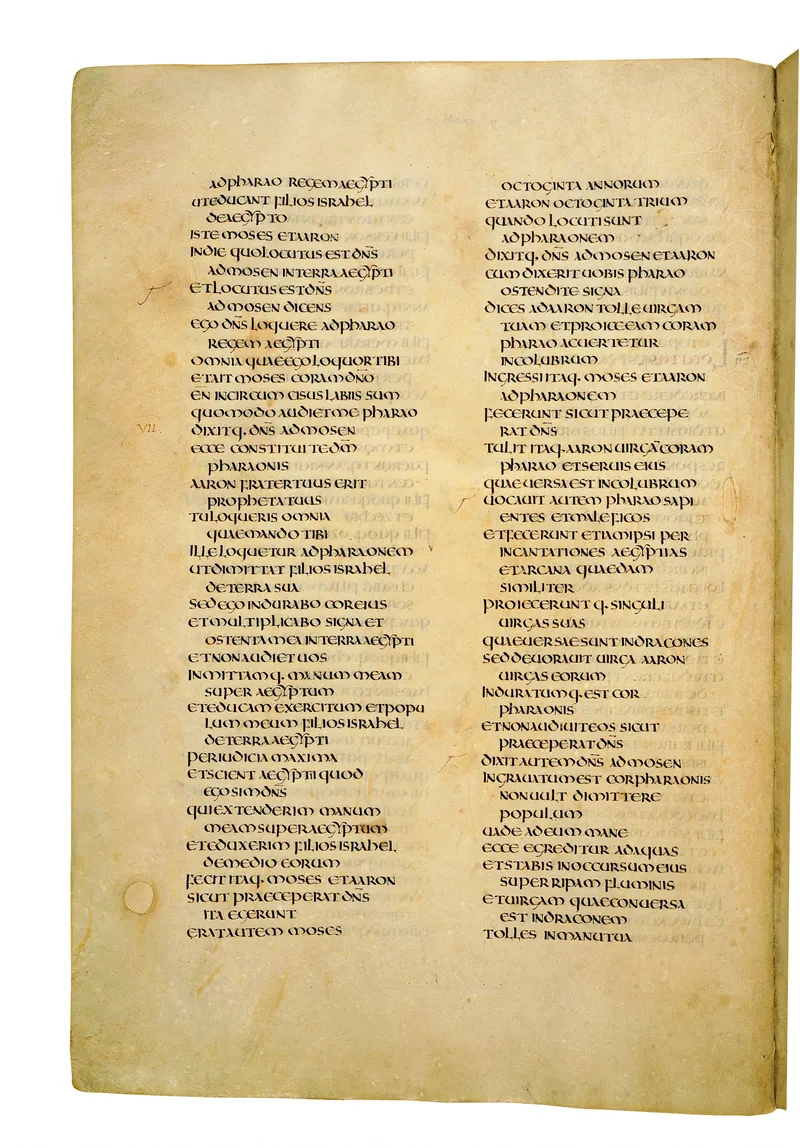 ADPHARAO REGEMAEGYPTI
UTEDUCANT FILIOS ISRAHEL
DEAEGYPTO
ISTE MOSES ETAARON
INDIE QUOLOCUTUS EST DN̅S
ADMOSEN INTERRA AEGYPTI
ETLOCUTUS ESTDN̅S
ADMOSEN DICENS
EGO DN̅S LOQUERE ADPHARAO
REGEM AEGYPTI
OMNIA QUAEEGO LOQUORTIBI
ETAIT MOSES CORAM DN̅O
EN INCIRCUM CISUS LABIIS SUM
QUOMODO AUDIETME PHARAO
VII.
DIXITQ. DN̅S ADMOSEN
ECCE CONSTITUI TEDM̅
PHARAONIS
AARON FRATERTUUS ERIT
PROPHETATUUS
TULOQUERIS OMNIA
QUAEMANDO TIBI
ILLELOQUETUR ADPHARAONEM
UTDIMITTAT FILIOS ISRAHEL
DETERRA SUA
SEDEGO INDURABO COREIUS
ETMULTIPLICABO SIGNA ET
OSTENTAMEA INTERRA AEGYPTI
ETNONAUDIET UOS
INMITTAMQ. MANUM MEAM
SUPER AEGYPTUM
ETEDUCAM EXERCITUM ETPOPU
LUM MEUM FILIOS ISRAHEL
DETERRA AEGYPTI
PERIUDICIA MAXIMA
ETSCIENT AEGYPTII QUOD
EGO SIM DN̅S
QUI EXTENDERIM MANUM
MEAM SUPERAEGYPTUM
ETEDUXERIM FILIOS ISRAHEL
DEMEDIO EORUM
FECIT ITAQ. MOSES ETAARON
SICUT PRAECEPERAT DN̅S
ITA EGERUNT
ERATAUTEM MOSES
OCTOGINTA ANNORUM
ETAARON OCTOGINTA TRIUM
QUANDO LOCUTI SUNT
ADPHARAONEM
DIXITQ. DN̅S ADMOSEN ETAARON
CUM DIXERIT UOBIS PHARAO
OSTENDITE SIGNA
DICES ADAARON TOLLE UIRGAM
TUAM ETPROICE EAM CORAM
PHARAO ACUERTETUR
INCOLUBRUM
INGRESSI ITAQ. MOSES ETAARON
ADPHARAONEM
FECERUNT SICUT PRAECEPE
RAT DN̅S
TULIT ITAQ. AARON UIRGA̅ CORAM
PHARAO ETSERUIS EIUS
QUAE UERSA EST INCOLUBRUM
UOCAUIT AUTEM PHARAO SAPI
ENTES ETMALEFICOS
ETFECERUNT ETIAMIPSI PER
INCANTATIONES AEGYPTIAS
ETARCANA QUAEDAM
SIMILITER
PROIECERUNTQ. SINGULI
UIRGAS SUAS
QUAEUERSAE SUNT INDRACONES
SED DEUORAUIT UIRGA AARON
UIRGAS EORUM
INDURATUMQ. EST COR
PHARAONIS
ETNONAUDIUITEOS SICUT
PRAECEPERAT DN̅S
DIXIT AUTEM DN̅S ADMOSEN
INGRAUATUM EST CORPHARAONIS
NONUULT DIMITTERE
POPULUM
UADE ADEUM MANE
ECCE EGREDITUR ADAQUAS
ETSTABIS INOCCURSUM EIUS
SUPER RIPAM FLUMINIS
ETUIRGAM QUAECONUERSA
EST INDRACONEM
TOLLES INMANUTUA